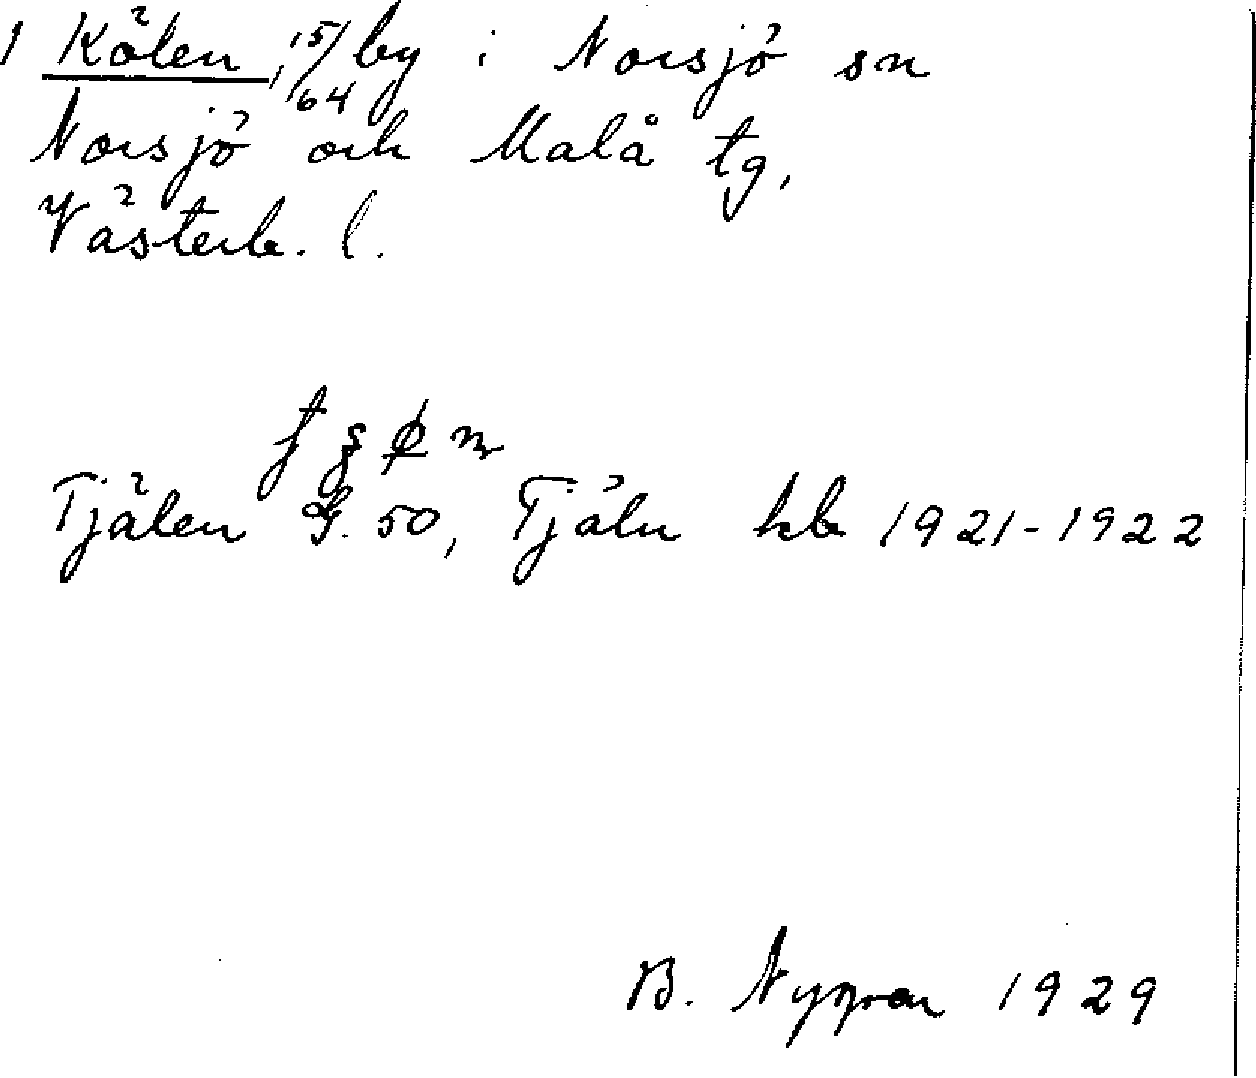 1 Kölen, 15/64 by i Norsjö sn
Norsjö och Malå tg,
Västerb. l.
Tjälen G. 50, Tjäln hb 1921-1922
B. Nygren 1929